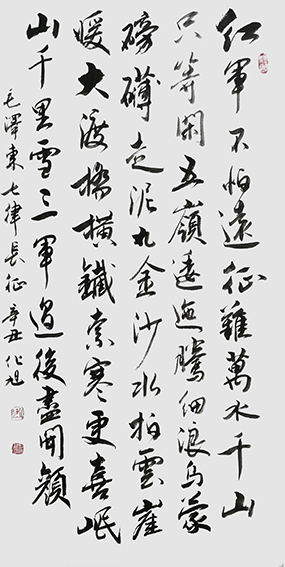 紅軍不怕遠征難萬水千山
只等閑五嶺逶迤騰細浪烏蒙
磅礴走泥丸金沙水拍雲崖
暖大渡橋橫鐵索寒更喜岷
山千里雪三軍過後盡開顏
毛澤東七律長征 辛丑 化旭